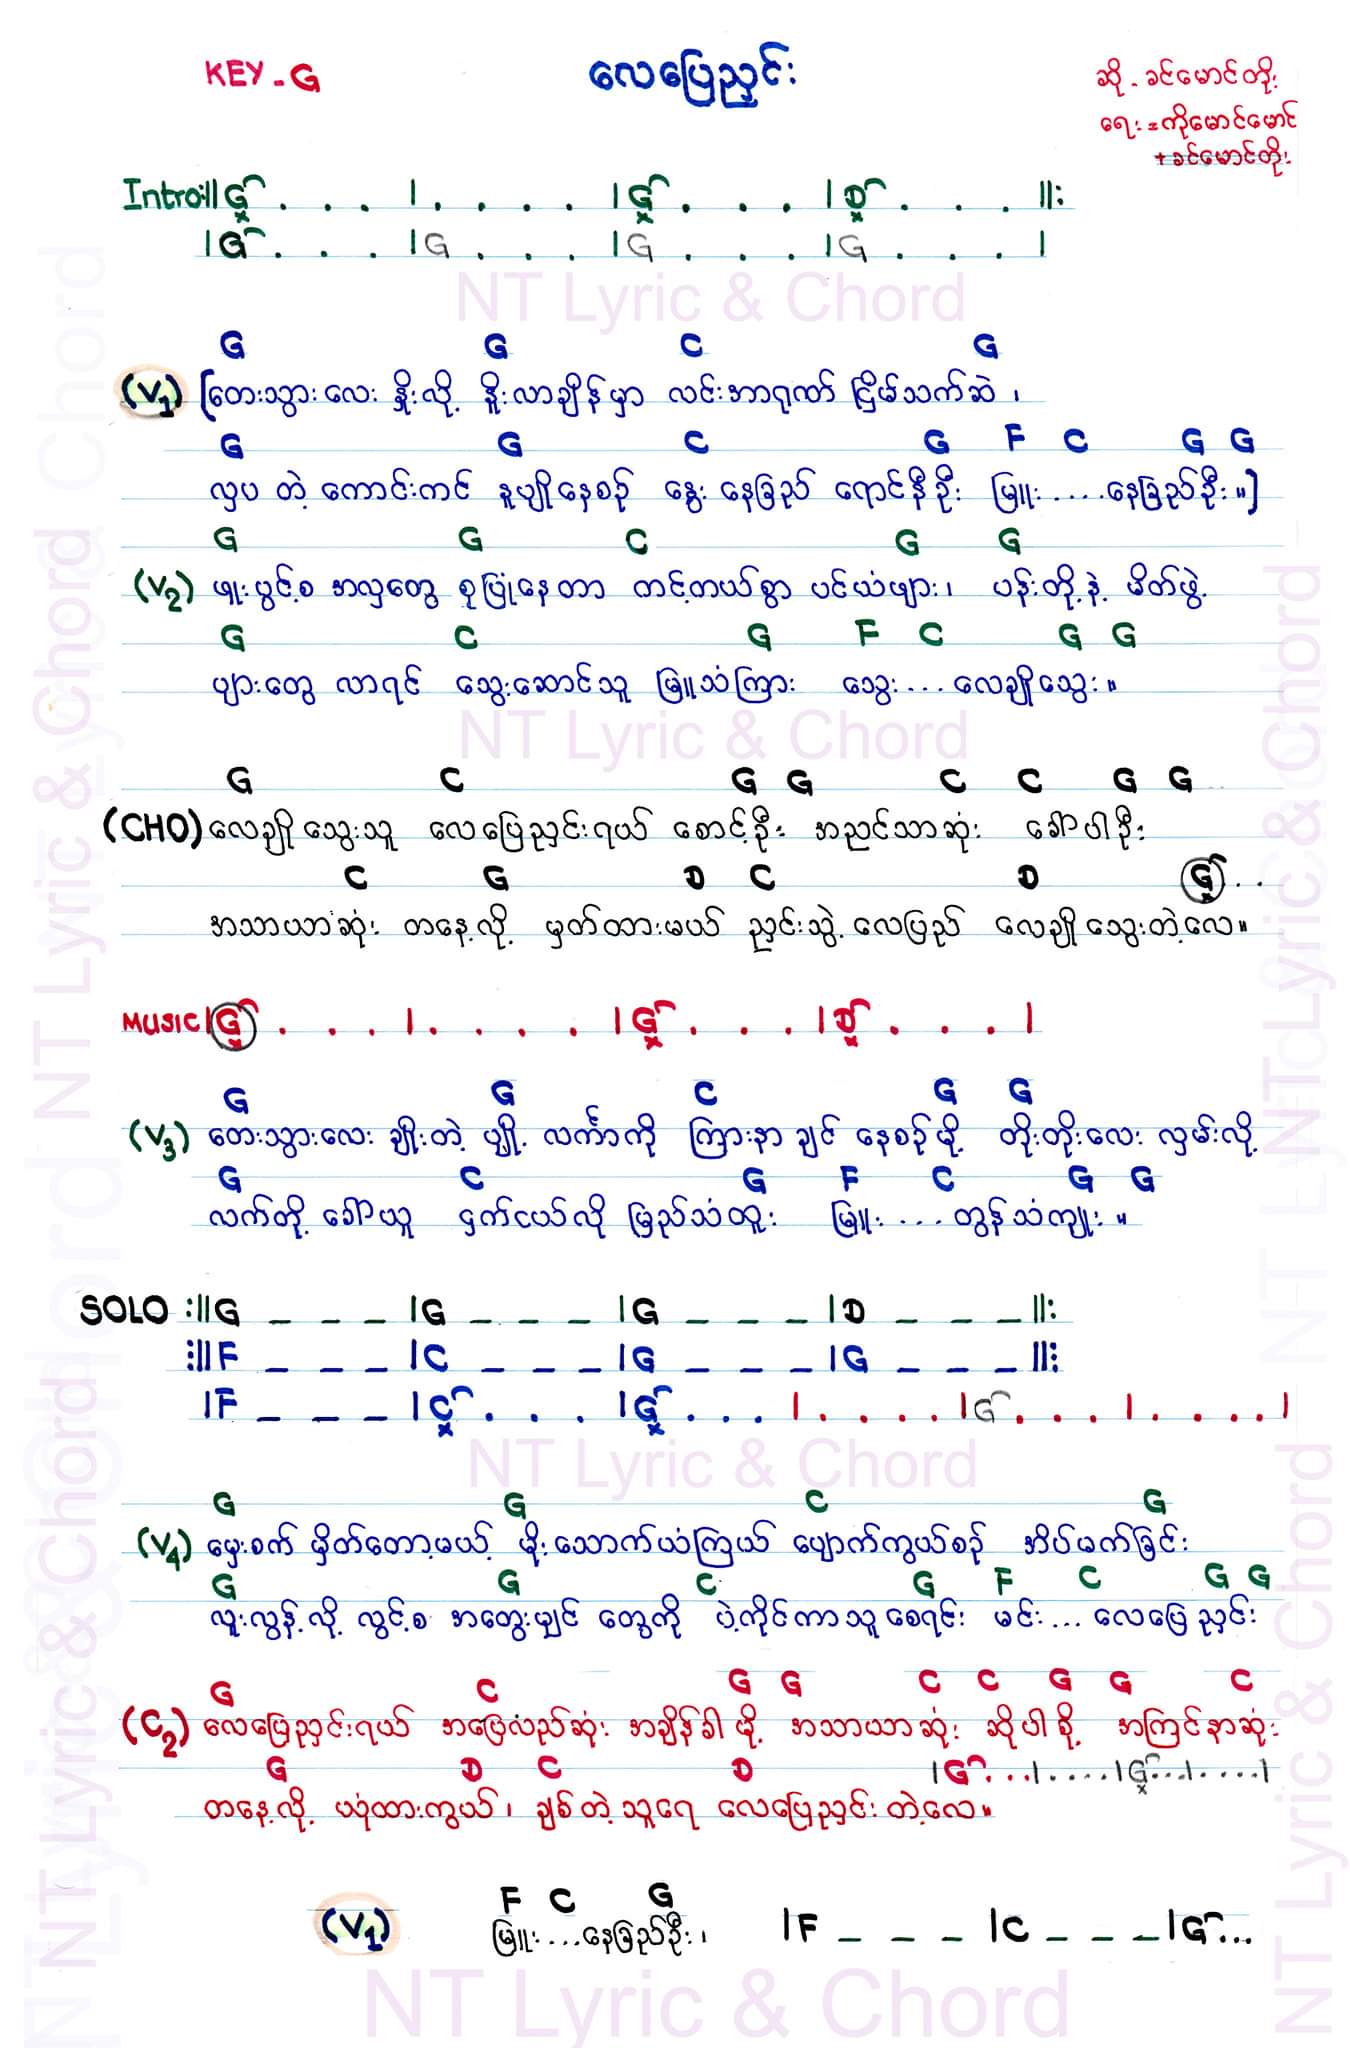 KEY - G
လေပြေညှင်း
ဆို - ခင်မောင်တိုး
ရေး = ကိုမောင်မောင်
+ ခင်မောင်တိုး
Intro:||G . . . | . . . . |G . . . |D . . . ||:
|G . . . |G . . . |G . . . |G . . . |
NT Lyric & Chord
G G C G
(V1) [တေးသွားလေး နှိုးလို့ နိူးလာချိန်မှာ လင်းအာရုဏ် ငြိမ်သက်ဆဲ ၊
G G C G F C G G
လှပ တဲ့ ကောင်းကင် နူပျိုနေစဉ် နွေး နေခြည် ရောင်နီဦး မြူး....နေခြည်ဦး ။]
G G C G G
(V2) ဖူးပွင့်စ အလှတွေ စုပြုံနေတာ ကင့်ကယ်စွာ ပင်ယံဖျား၊ ပန်းတို့နဲ့ မိတ်ဖွဲ့
G C G F C G G
ပျားတွေ လာရင် သွေးဆောင်သူ မြူသံကြား သွေး...လေချိုသွေး ။
NT Lyric & Chord
G C G G C C G G
(CHO) လေချိုသွေးသူ လေပြေညှင်းရယ် စောင့်ဦး အညင်သာဆုံး ခေါ်ပါဦး
C G D C D G ..
အသာယာဆုံး တနေ့လို့ မှတ်ထားမယ် ညှင်းသွဲ့ လေပြည် လေချိုသွေးတဲ့လေ။
MUSIC |G . . . | . . . . |G . . . |D . . . |
G G C G G
(V3) တေးသွားလေး ချိုးတဲ့ ပျို့ လင်္ကာကို ကြားနာ ချင် နေစဉ်မို့ တိုးတိုးလေး လှမ်းလို့
G C G F C G G
လက်တို့ ခေါ်ယူ ငှက်ငယ်လို မြည်သံထူး မြူး ...တွန်သံကျူး ။
SOLO :||G _ _ _ |G _ _ _ |G _ _ _ |D _ _ _ ||:
:||F _ _ _ |C _ _ _ |G _ _ _ |G _ _ _ ||:
|F _ _ _ |C . . . |G . . . | . . . . |G . . . | . . . . |
NT Lyric & Chord
G G C G
(V4) မှေးစက် မှိတ်တော့မယ့် မိုးသောက်ယံကြယ် ပျောက်ကွယ်စဉ် အိပ်မက်ခြင်း
G G C G F C G G
လူးလွန့်လို့ လွင့်စ အတွေးမျှင် တွေကို ပဲ့ကိုင်ကာသူ စေရင်း မင်း... လေပြေ ညှင်း
G C G G C C G G C
(C2) လေပြေညှင်းရယ် အပြေလည်ဆုံး အချိန်ခါ မို့ အသာယာဆုံး ဆိုပါစို့ အကြင်နာဆုံး
G D C D |G...|....|G...|....|
တနေ့လို့ ယုံထားကွယ်၊ ချစ်တဲ့သူရေ လေပြေညှင်းတဲ့လေ။
F C G
(V1) မြူး...နေခြည်ဦး၊ |F _ _ _ |C _ _ _ |G...
NT Lyric & Chord